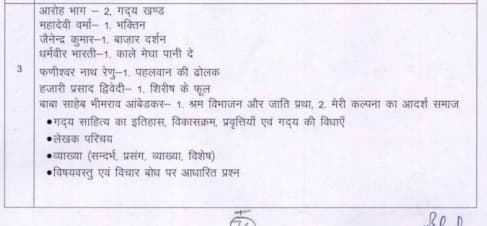 आरोह भाग – 2, गद्य खण्ड
महादेवी वर्मा– 1. भक्तिन
जैनेन्द्र कुमार–1. बाज़ार दर्शन
धर्मवीर भारती–1. काले मेघा पानी दे
3 फणीश्वर नाथ रेणु–1. पहलवान की ढोलक
हजारी प्रसाद द्विवेदी– 1. शिरीष के फूल
बाबा साहेब भीमराव आंबेडकर– 1. श्रम विभाजन और जाति प्रथा, 2. मेरी कल्पना का आदर्श समाज
●गद्य साहित्य का इतिहास, विकासक्रम, प्रवृत्तियाँ एवं गद्य की विधाएँ
●लेखक परिचय
●व्याख्या (सन्दर्भ, प्रसंग, व्याख्या, विशेष)
●विषयवस्तु एवं विचार बोध पर आधारित प्रश्न